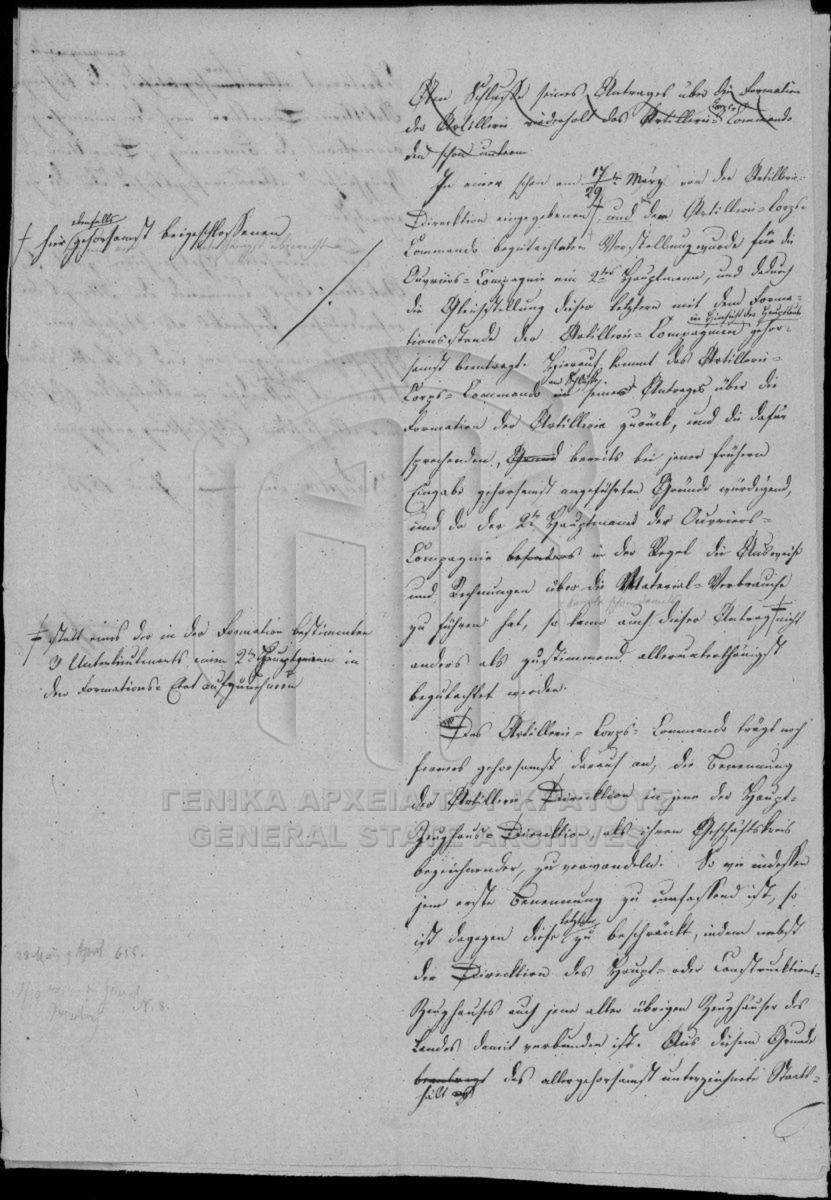 Am Schlusse seines Antrages über die Formation
der Artillerie wiederholt das Artillerie-Corps-Commando
den schon unterm
In einer schon am 17/29 ten März von der Artillerie-
Direcktion eingegebenen, und dem Artillerie-Corps-
Commando begutachteten Vorstellung wurde für die
Ouvriers-Compagnie ein 2ter Hauptmann, und dadurch
die Gleichstellung dieser letztern mit dem Forma-
in Hinsicht der Hauptleute
tionsstande der Artillerie-Compagnien gehor-
samst beantragt. Hierauf kommt das Artillerie-
am Schluße
Corps-Commando in seines Antrages, über die
Formation der Artillerie zurück, und die dafür
sprechenden, bereits bei jener frühern
Eingabe gehorsamst angeführten Gründe würdigend,
und da der 2te Hauptmann der Ouvriers-
Compagnie besonders in der Regel die Ausweise
und Rechnungen über die Material-Verbrauche
zu führen hat, so kann auch dieser Antrag nicht
anders als zustimmend allerunterthänigst
begutachtet werden.
Das Artillerie-Corps-Commando trägt noch
ferners gehorsamst darauf an, die Benennung
der Artillerie Direcktion in jene der Haupt-
Zeughaus-Direcktion, als ihren Geschäftskreis
bezeichnender, zu verwandeln. So wie indessen
jene erste Benennung zu umfassend ist, so
letztere
ist dagegen diese zu beschränkt, indem nebst
der Direcktion des Haupt- oder Construcktions-
Zeughauses auch jene aller übrigen Zeughäuser des
Landes damit verbunden ist. Aus diesem Grunde
beantragt das allergehorsamst unterzeichnete Staats-
hält
ebenfalls
† hier gehorsamst beigeschlossenen
‡ statt eines der in der Formation bestimmten
Unterlieutenants einen 2ten Hauptmann in
den Formations-Etat aufzunehmen
28 März 9 April 655.
N. 8.
ΓΕΝΙΚΑ ΑΡΧΕΙΑ ΤΟΥ ΚΡΑΤΟΥΣ
GENERAL STATE ARCHIVES